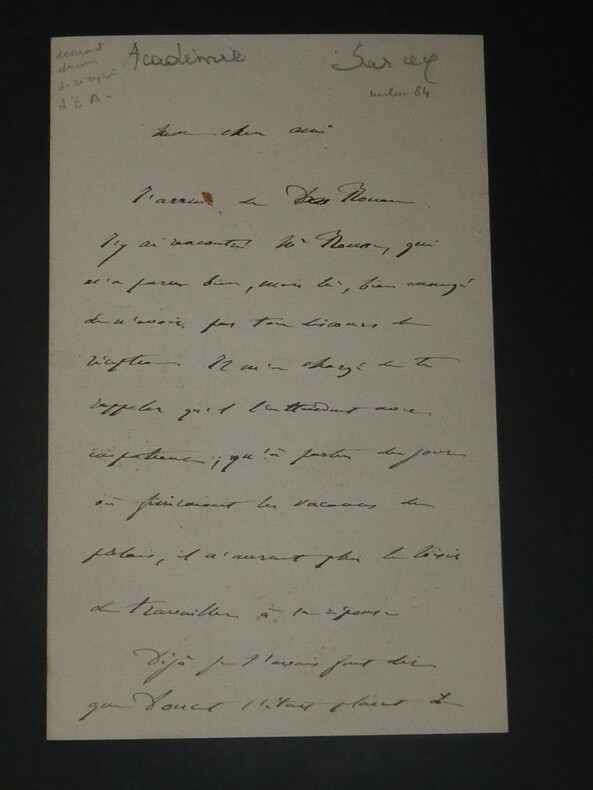 Académie
Sarcey
84
d'E A-
mon cher ami
J'arrive de Rouen
J'y ai rencontré Mr Rousse, qui
m'a parlé bien, mais là, bien ennuyé
de n'avoir pas ton discours de
réception. Il m'a chargé de te
rappeler qu'il l'attendait avec
impatience; qu'à partir du jour
où finiraient les vacances du
palais, il n'aurait plus le loisir
de travailler à sa réponse
Déjà je t'avais fait dire
que Doucet s'était plaint de